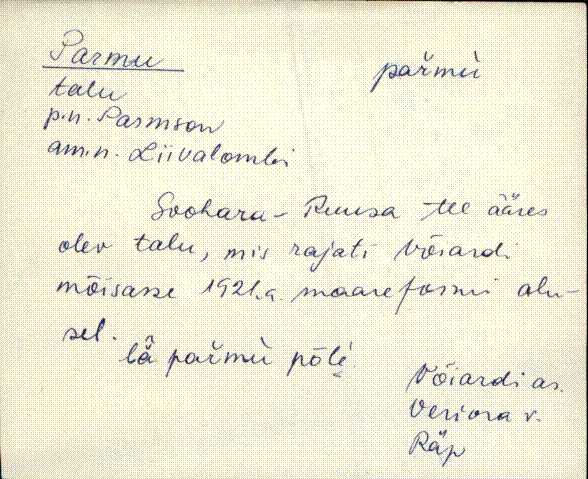 Parmu
pařmù
talu
p.n. Parmson
am.n. Liivalombi
Soohara - Ruusa tee ääres
olev talu, mis rajati Võiardi
mõisasse 1921.a. maareformi alu-
sel.
lǟ pařmù põlé
Võiardi as.
Veriora v.
Räp